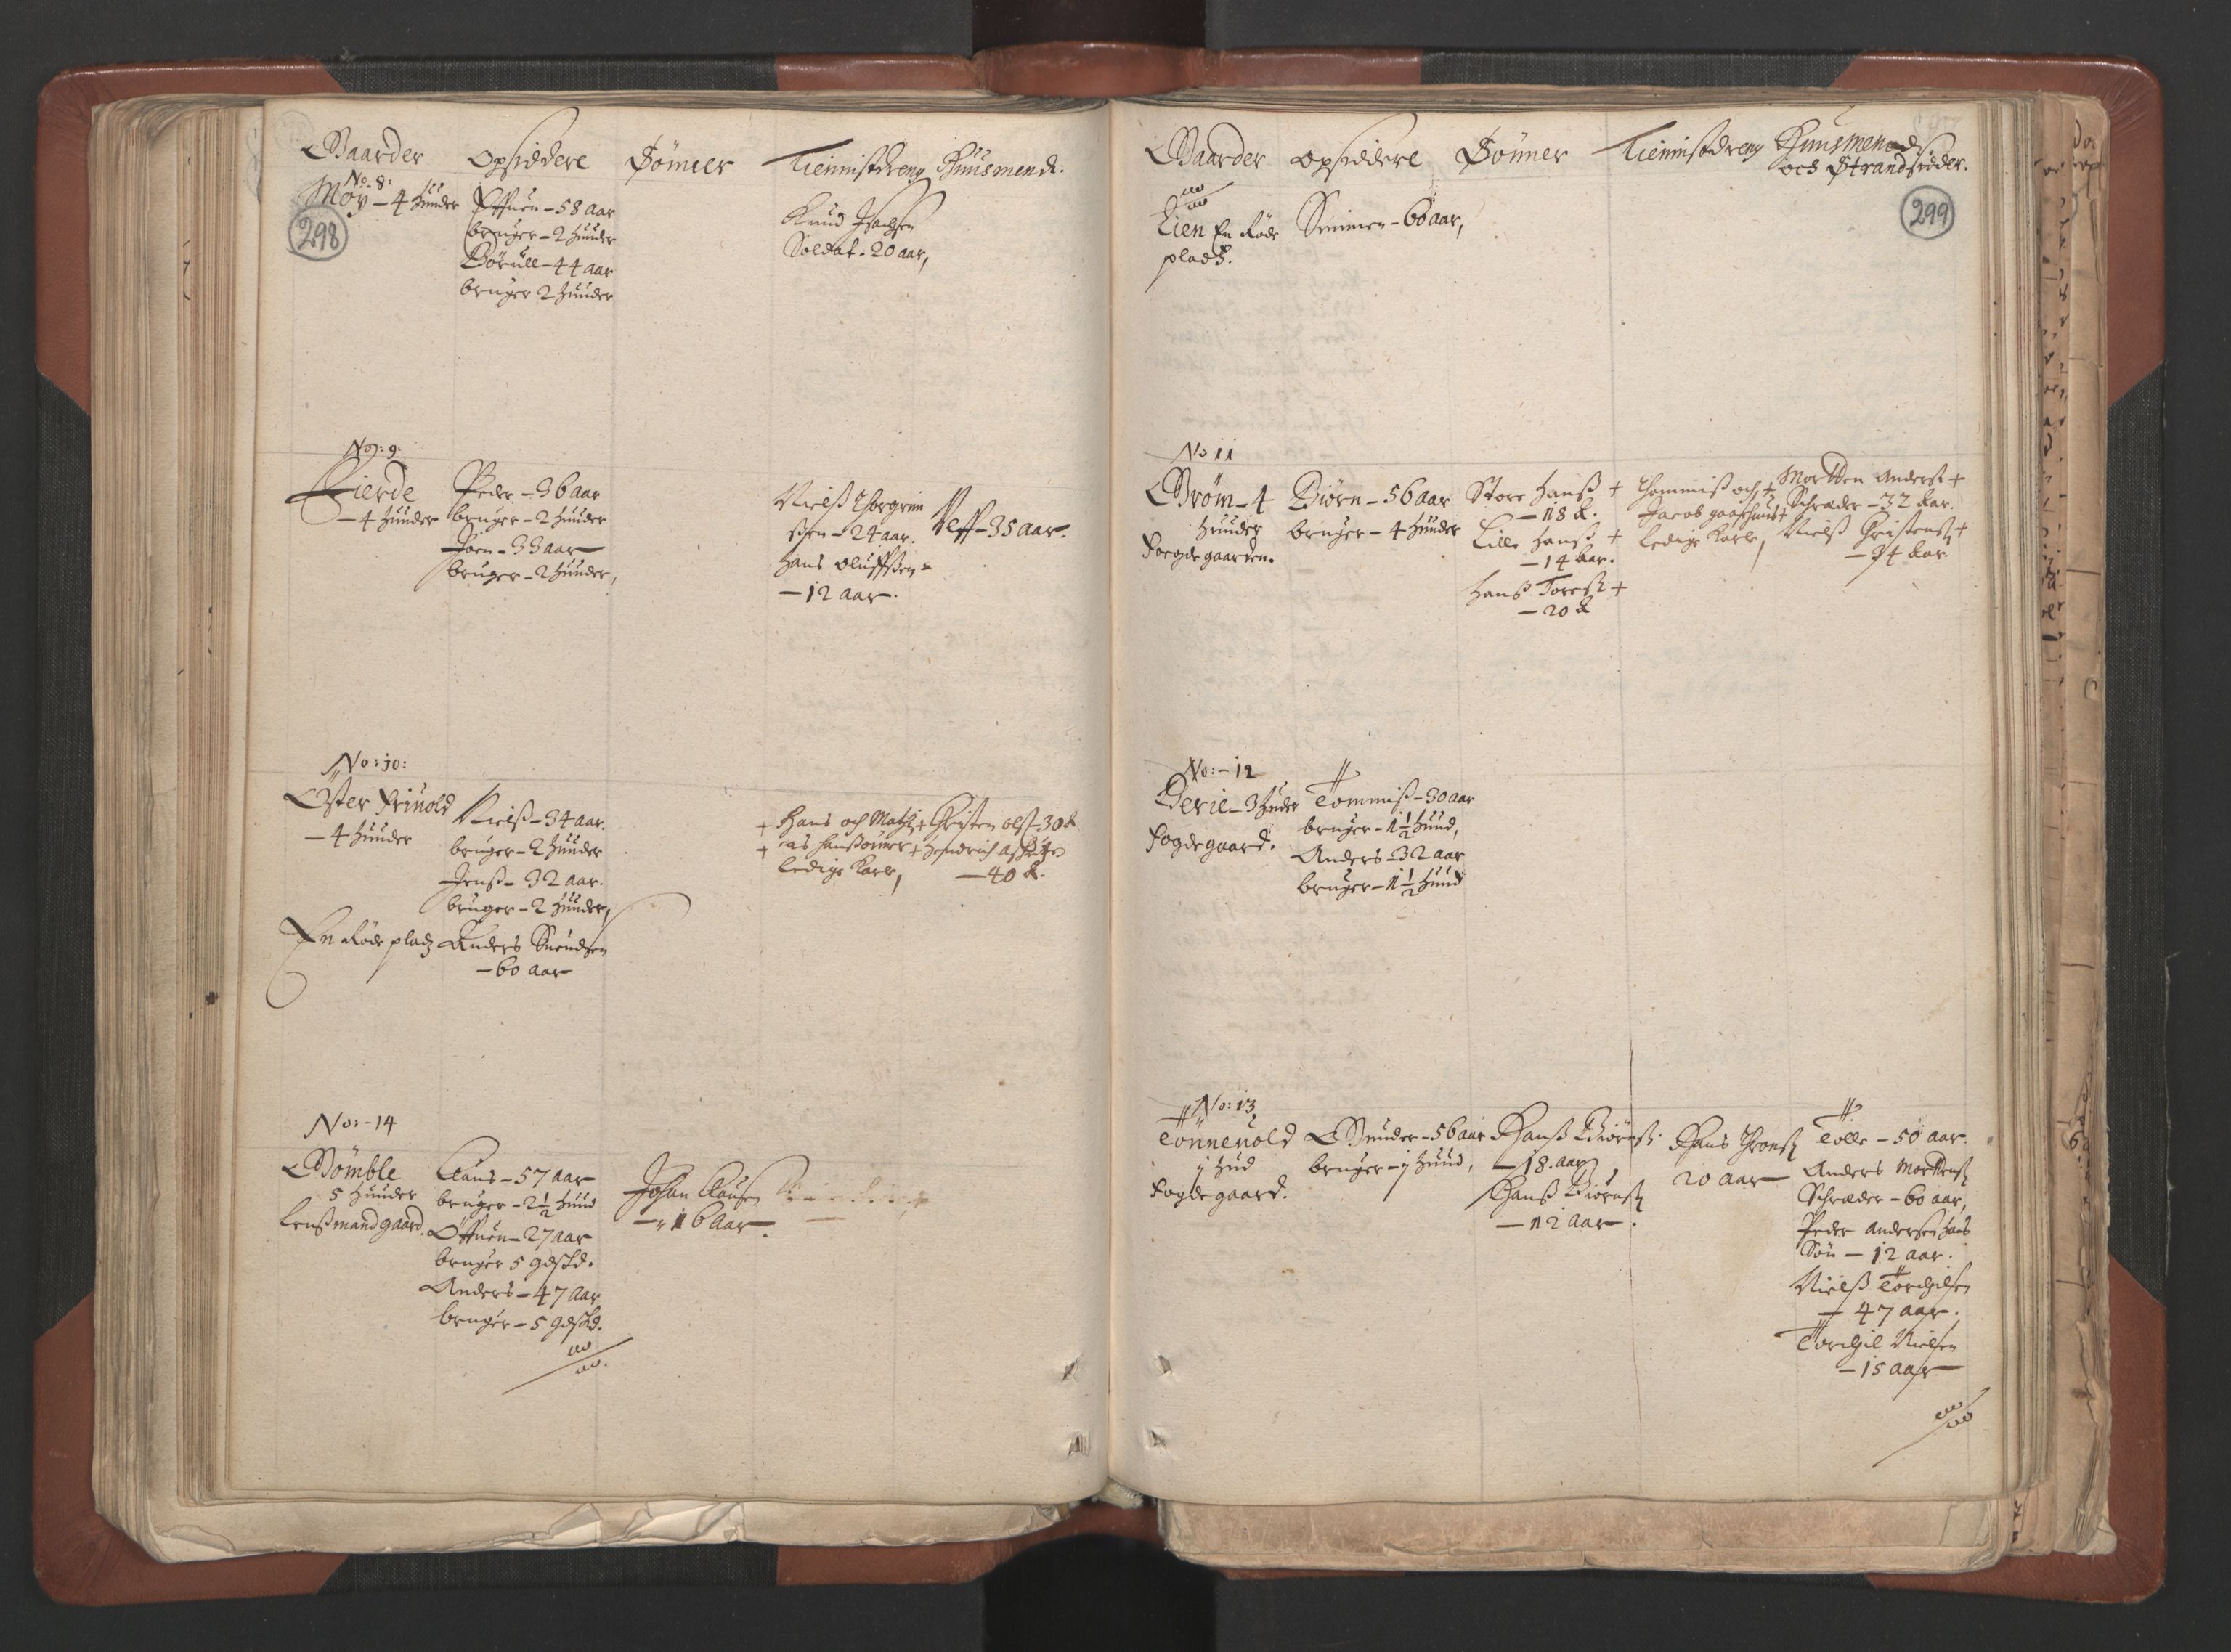 Gaarder Opsiddere Sönner Tiennistdreng Huusmend.
No. 8:
Möy – 4 Huuder
298
Effuen – 58 aar
bruger – 2 Huuder
Börull – 44 aar
bruger 2 Huuder
Knud Isachsen
Soldat – 20 aar,
No: 9:
Fierde
– 4 Huuder
Peder – 36 aar
bruger – 2 Huuder
Joen – 33 aar
bruger – 2 Huuder,
Nielß Thorgrim
sen – 24 aar.
Hans Oluffsen
– 12 aar.
Ulff – 35 aar.
No: 10:
Öster Friuold
– 4 Huuder
Nielß – 34 aar.
bruger – 2 Huuder
Jenß – 32 aar.
bruger – 2 Huuder,
En Øde pladz Anders Suendsen
– 60 aar
+ Hans och Math
+ ias Hanßönner
ledige Karle,
+ Christen Olß – 30 A
+ Hendrich
– 40 A.
No: – 14
Bömble
5 Huuder
Lenßmand gaard.
Claus – 57 aar
bruger – 2 1/2 Huud
Öffuen – 27 aar
bruger 5 gdskd.
Anders – 47 aar
bruger – 5 gdskd.
Johan Clausen
– 16 aar.
Gaarder Opsiddere Sönner Tiennistdreng Huusmend
och Strandsider.
299
Lien En Øde
pladß.
Simmen – 60 aar,
No 11
Gröm – 4
Huuder
Foegdegaarden.
Biörn – 56 aar
bruger – 4 Huuder
Store Hanß +
– 18 A.
Lille Hanß +
– 14 aar.
Hanß Toreß +
– 20 A
Thommiß och +
Jacob +
ledige Karle,
Mortten Anderß +
Schreder – 32 aar.
Nielß Christenß +
– 24 aar.
No: – 12
Berie – 3 Huuder
Fogdegaard.
Tommiß – 30 aar
bruger – 1 1/2 Huud,
Anders – 32 aar
bruger – 1 1/2 Huud
No: 13
Tönneuold
1 Hud
Fogdegaard.
Gunder – 56 aar
bruger – 1 Huud,
Hanß Biörnß.
– 18. aar
Hanß Biörnß
– 12 aar.
Hans Thronß
20 aar
Tolle – 50 aar.
Anders Mortenß
Schreder – 60 aar,
Peder Andersen hans
Sön – 12 aar.
Nielß Torchilsen
– 47 aar.
Torchil Nielsen
– 15 aar